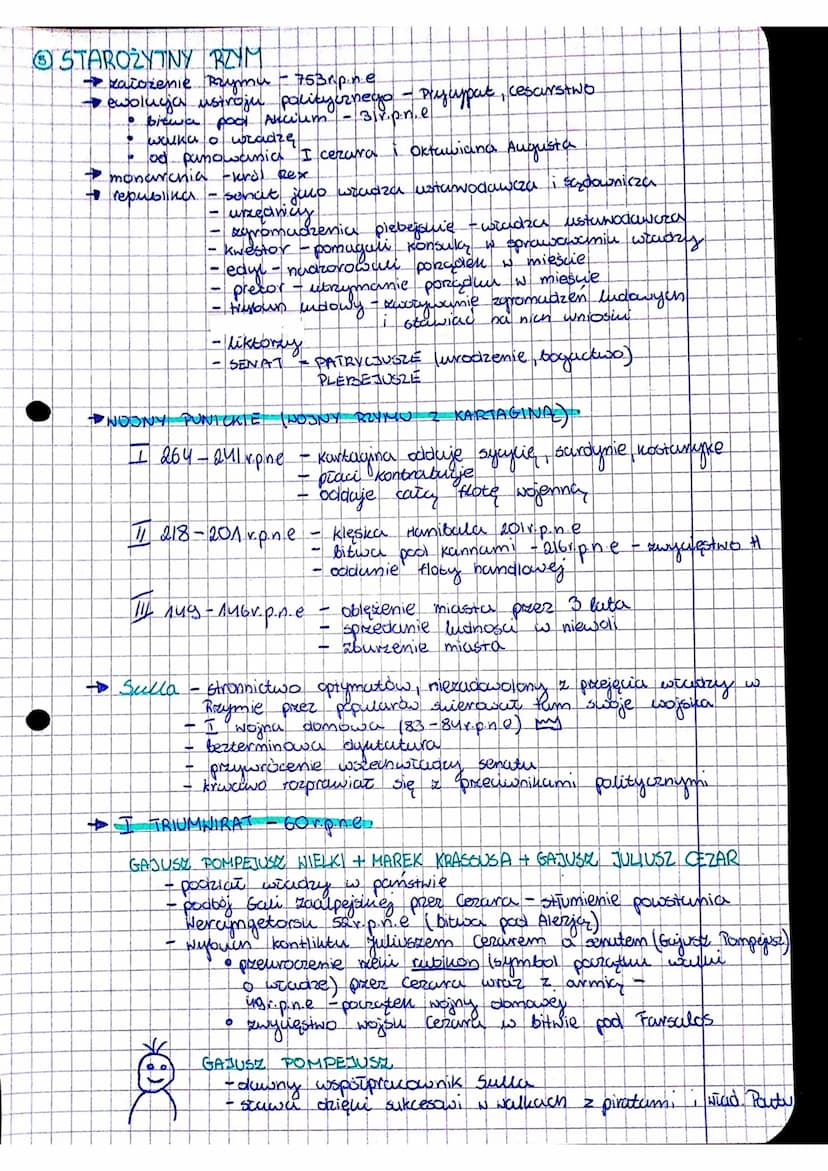 ⑤ STAROŻYTNY RZYM
→ założenie Rzymu - 753r.p.n.e
→ ewolucja ustroju politycznego - Pryncypat, cesarstwo
• bitwa pod Akcium - 31r.p.n.e
• walka o władzę
• od panowania I cezara i Oktawiana Augusta
→ monarchia - król Rex
→ republika - senat jako władza ustawodawcza i sądownicza
- urzędnicy
- zgromadzenia plebejskie - władza ustawodawcza
- kwestor - pomagali konsulą w sprawowaniu władzy
- edyl - nadzorowali porządek w mieście
- pretor - utrzymanie porządku w mieście
- trybun ludowy - zwoływanie zgromadzeń ludowych
i stawiać na nich wnioski
- liktorzy
- SENAT - PATRYCJUSZE (urodzenie, bogactwo)
PLEBEJUSZE
→ WOJNY PUNICKIE (WOJNY RZYMU Z KARTAGINĄ)
I 264-241r.pne - Kartagina oddaje sycylię, sardynie, kostarykę
- płaci kontrabucje
- oddaje całą flotę wojenną
II 218-201r.p.n.e - klęska Hanibala 201r.p.n.e
- bitwa pod kannami - 216r.p.n.e - zwycięstwo H
- oddanie floty handlowej
III 149-146r.p.n.e - oblężenie miasta przez 3 lata
- sprzedanie ludności w niewoli
- zburzenie miasta
→ Sulla - stronnictwo optymatów, niezadowolony z przejęcia władzy w
Rzymie przez popularów skierował tam swoje wojska
- I wojna domowa (83-84r.p.n.e)
- bezterminowa dyktatura
- przywrócenie wszechwładzy senatu
- krwawo rozprawiał się z przeciwnikami politycznymi
→ I TRIUMWIRAT - 60r.p.n.e
GAJUSZ POMPEJUSZ WIELKI + MAREK KRASSUSA + GAJUSZ JULIUSZ CEZAR
- podział władzy w państwie
- podbój Gali zaalpejskiej przez Cezara - stłumienie powstania
Wercyngetorsu 52r.p.n.e (bitwa pod Alezją)
- wybuch konfliktu Juliuszem Cezarem a senatem (Gajusz Pompejusz)
• przekroczenie rzeki rubikon (symbol początku walki
o władze) przez Cezara wraz z armią -
49r.p.n.e - początek wojny domowej
• zwycięstwo wojsk Cezara w bitwie pod Farsalos
GAJUSZ POMPEJUSZ
- dawny współpracownik Sulla
- sława dzięki sukcesowi w walkach z piratami i wład. Pontu